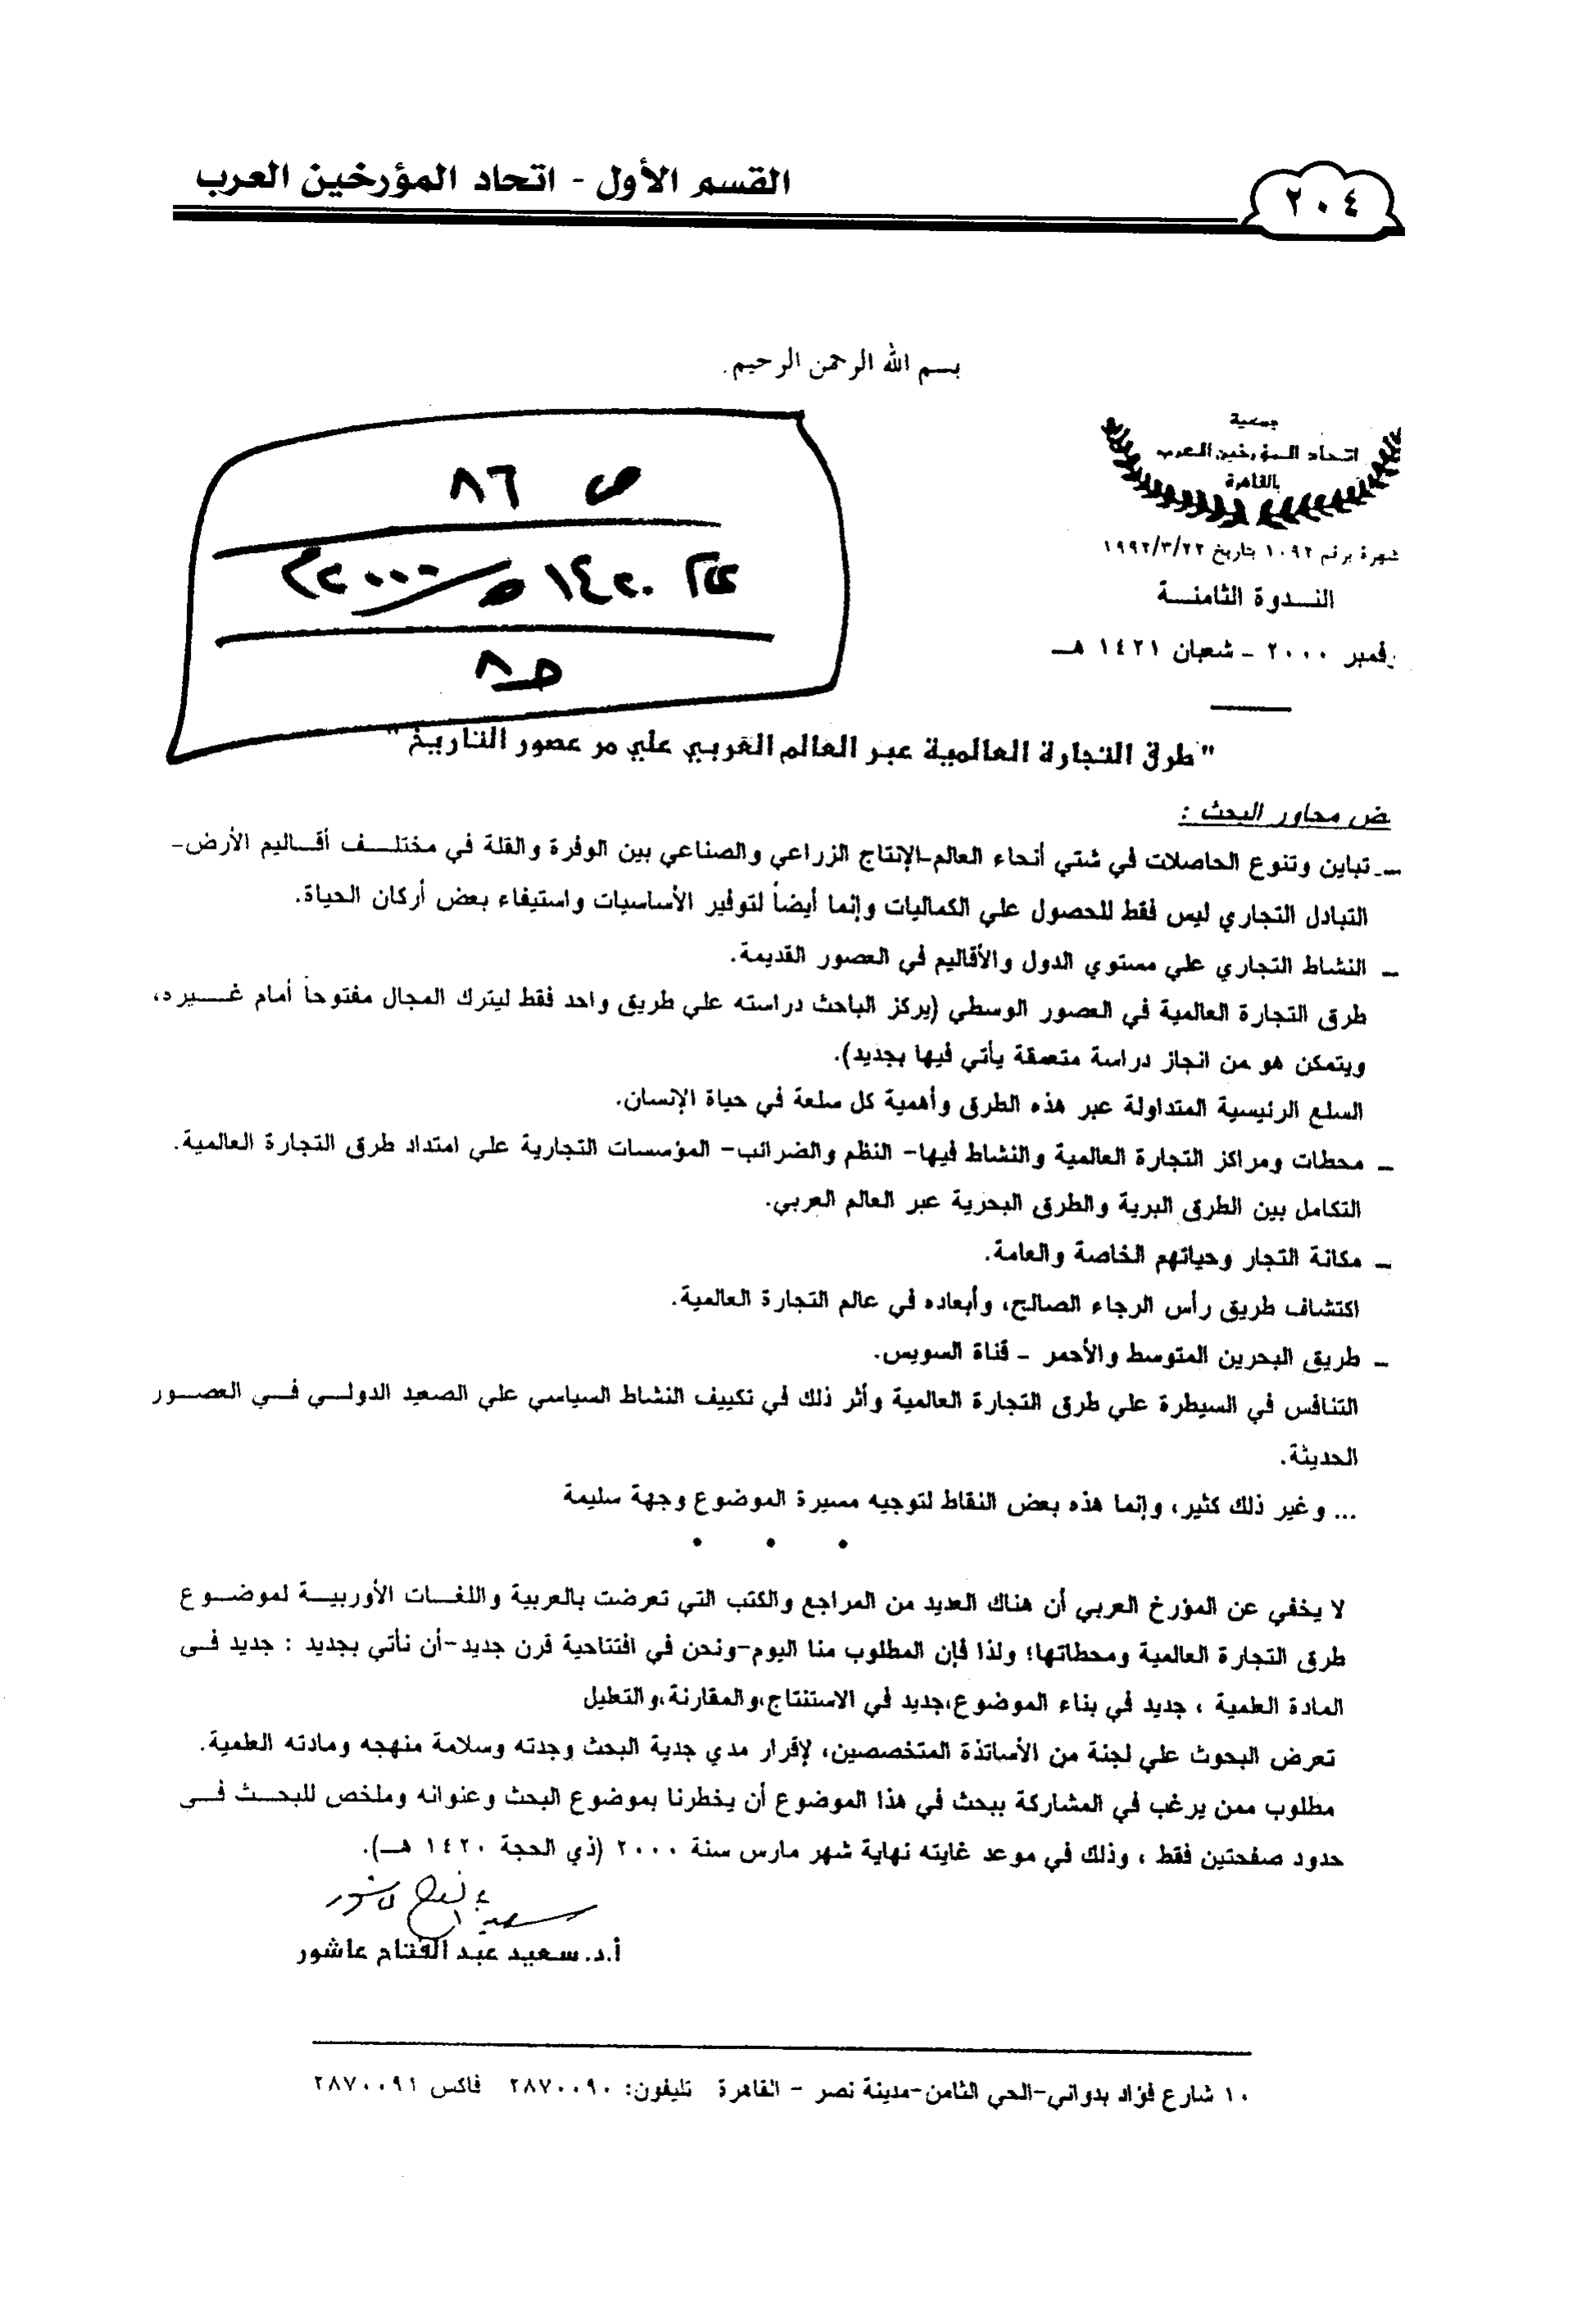 القسم الأول - اتحاد المؤرخين العرب
٢٠٤
بسم الله الرحمن الرحيم.
جمعية
اتحاد المؤرخين العرب
بالقاهرة
شهرة برقم ١٠٩٢ بتاريخ ١٩٩٢/٣/٢٢
النـــدوة الثامنـــة
فمبر ٢٠٠٠ - شعبان ١٤٢١ هـــ
ص ٨٦
١٤٢٠ هـ / ٢٠٠٠ م
حـ ٨
" طرق التجارة العالمية عبر العالم العربي علي مر عصور التاريخ "
ض محاور البحث :
- تباين وتنوع الحاصلات في شتي أنحاء العالم-الإنتاج الزراعي والصناعي بين الوفرة والقلة في مختلـــف أقـــاليم الأرض-
التبادل التجاري ليس فقط للحصول علي الكماليات وإنما أيضاً لتوفير الأساسيات واستيفاء بعض أركان الحياة.
- النشاط التجاري علي مستوي الدول والأقاليم في العصور القديمة.
طرق التجارة العالمية في العصور الوسطي (يركز الباحث دراسته علي طريق واحد فقط ليترك المجال مفتوحاً أمام غـــــيره،
ويتمكن هو من انجاز دراسة متعمقة يأتي فيها بجديد).
السلع الرئيسية المتداولة عبر هذه الطرق وأهمية كل سلعة في حياة الإنسان.
- محطات ومراكز التجارة العالمية والنشاط فيها- النظم والضرائب- المؤسسات التجارية علي امتداد طرق التجارة العالمية.
التكامل بين الطرق البرية والطرق البحرية عبر العالم العربي.
- مكانة التجار وحياتهم الخاصة والعامة.
اكتشاف طريق رأس الرجاء الصالح، وأبعاده في عالم التجارة العالمية.
- طريق البحرين المتوسط والأحمر - قناة السويس.
التنافس في السيطرة علي طرق التجارة العالمية وأثر ذلك في تكييف النشاط السياسي علي الصعيد الدولـــي فـــي العصـــور
الحديثة.
... وغير ذلك كثير، وإنما هذه بعض النقاط لتوجيه مسيرة الموضوع وجهة سليمة
• • •
لا يخفي عن المؤرخ العربي أن هناك العديد من المراجع والكتب التي تعرضت بالعربية واللغـــات الأوربيـــة لموضـــوع
طرق التجارة العالمية ومحطاتها؛ ولذا فإن المطلوب منا اليوم-ونحن في افتتاحية قرن جديد-أن نأتي بجديد : جديد فـــى
المادة العلمية ، جديد في بناء الموضوع،جديد في الاستنتاج،والمقارنة،والتعليل
تعرض البحوث علي لجنة من الأساتذة المتخصصين، لإقرار مدي جدية البحث وجدته وسلامة منهجه ومادته العلمية.
مطلوب ممن يرغب في المشاركة ببحث في هذا الموضوع أن يخطرنا بموضوع البحث وعنوانه وملخص للبحـــث فـــى
حدود صفحتين فقط ، وذلك في موعد غايته نهاية شهر مارس سنة ٢٠٠٠ (ذي الحجة ١٤٢٠ هـــ).
أ.د. سعيد عبد الفتاح عاشور
١٠ شارع فؤاد بدواني-الحي الثامن-مدينة نصر - القاهرة تليفون: ٢٨٧٠٠٩٠ فاكس ٢٨٧٠٠٩١